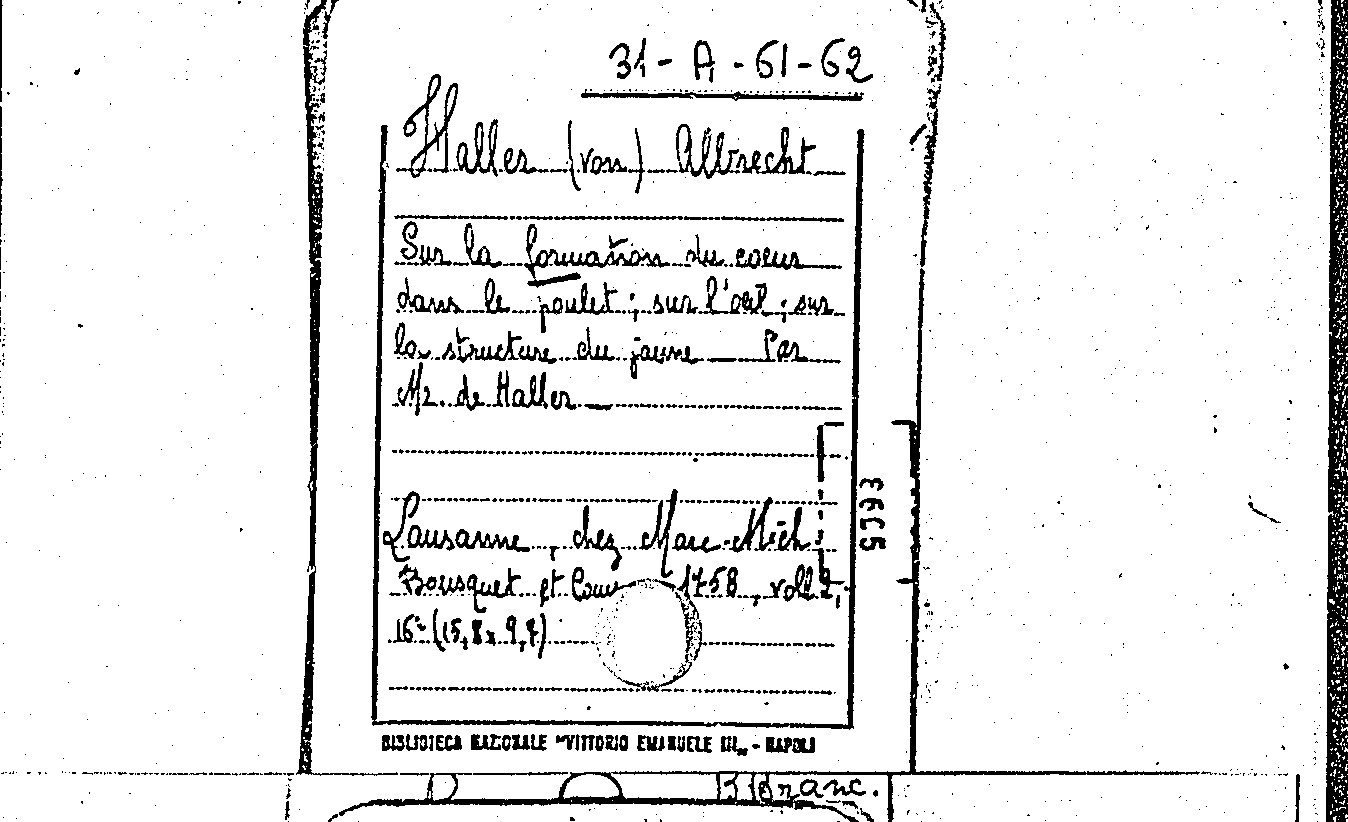 31-A-61-62
Haller (von) Albrecht
Sur la formation du coeur
dans le poulet; sur l'oeil; sur
la structure du jaune — Par
Mr. de Haller —
Lausanne, chez Marc-Mich.
Bousquet et 1758, voll 2,
16° (15,8 x 9,7)
5793
BIBLIOTECA NAZIONALE "VITTORIO EMANUELE III„ - NAPOLI
B Branc.